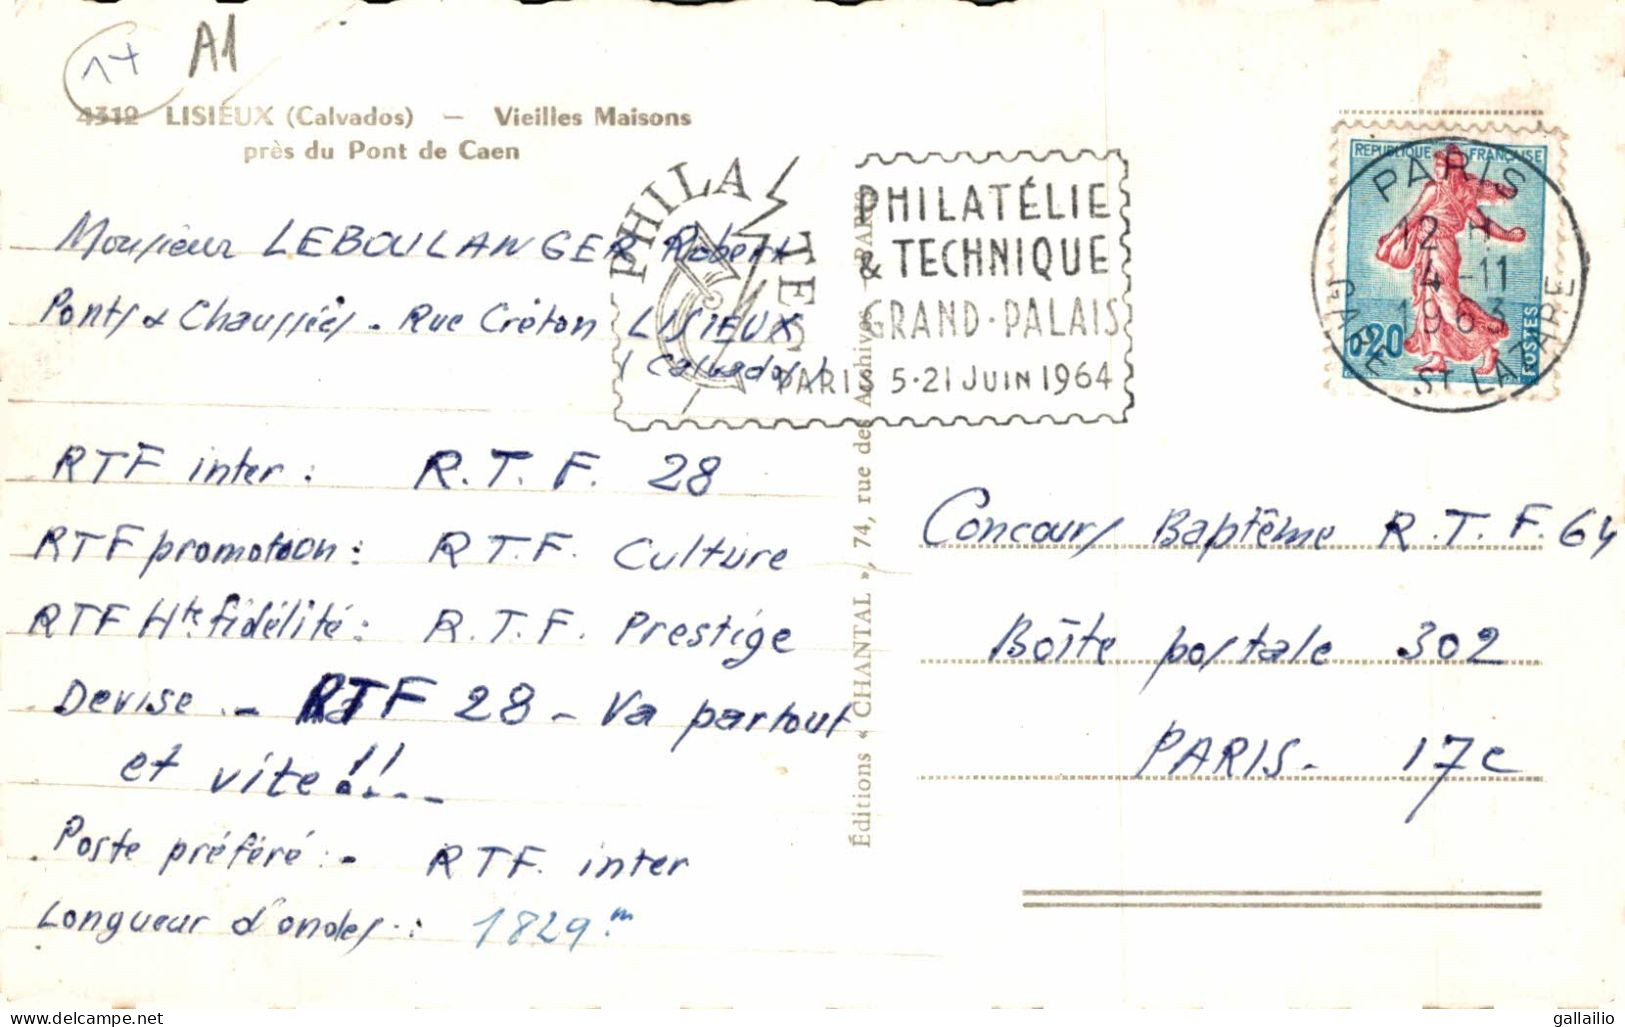 17 A1
4312 LISIEUX (Calvados) — Vieilles Maisons
près du Pont de Caen
Monsieur LEBOULANGER Robert
Ponts & Chaussées - Rue Créton LISIEUX
(Calvados)
RTF inter : R.T.F. 28
RTF promotion : R.T.F. Culture
RTF Hte fidélité : R.T.F. Prestige
Devise - RTF 28 - Va partout
et vite !!...
Poste préféré : - RTF. inter
Longueur d'ondes : 1829 m
PHILATEC
PHILATÉLIE
& TECHNIQUE
GRAND-PALAIS
PARIS 5-21 JUIN 1964
Éditions « CHANTAL », 74, rue des Archives - PARIS
REPUBLIQUE FRANÇAISE
0,20
POSTES
PARIS
12 H
4-11
1963
GARE ST LAZARE
Concours Baptême R.T.F. 64
Boîte postale 302
PARIS - 17e
www.delcampe.net
gallailio